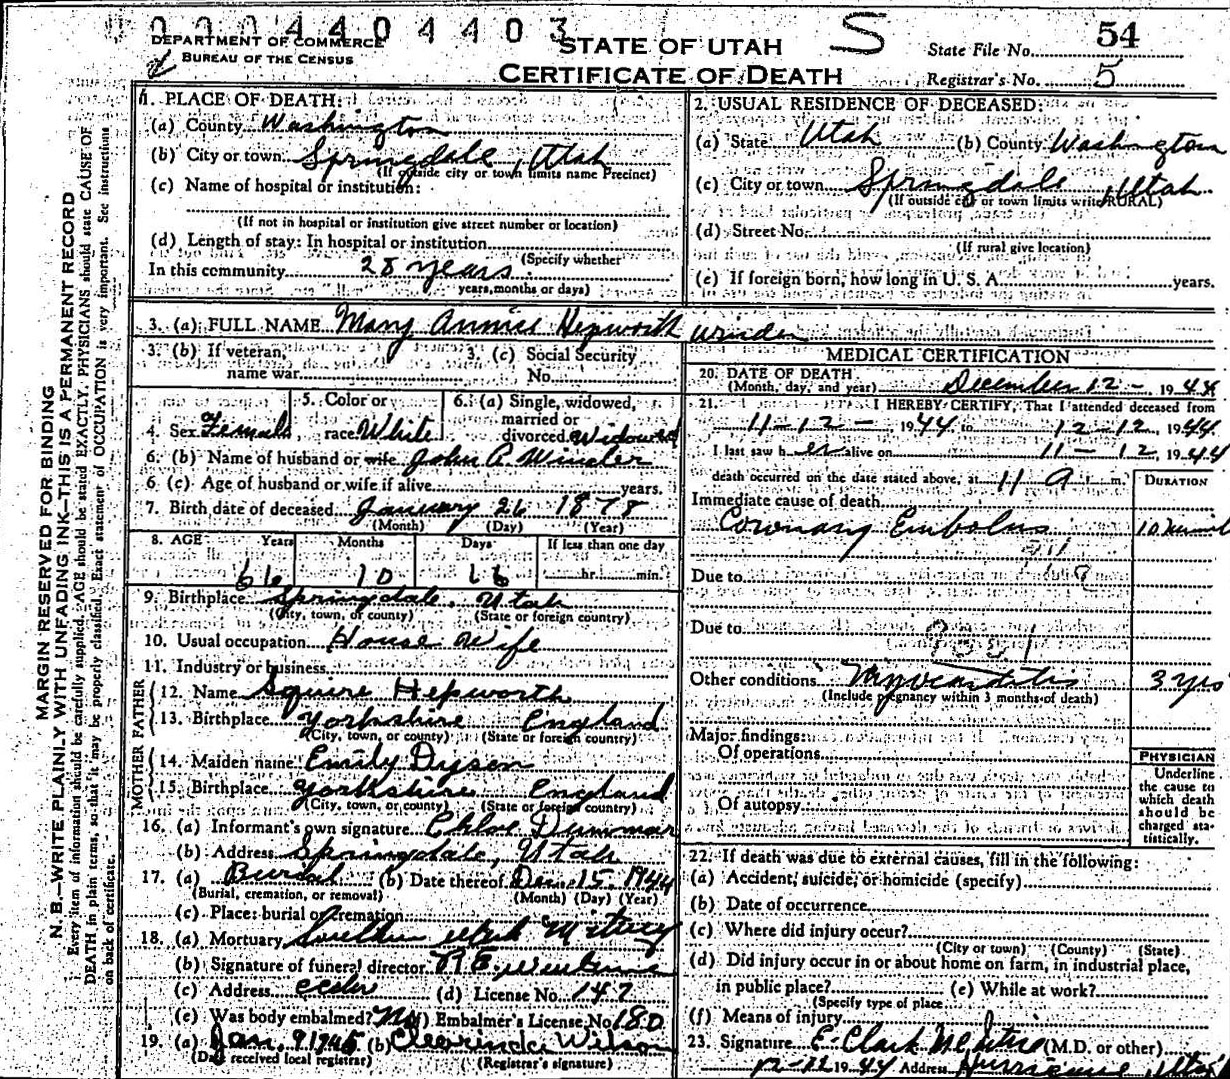 0004404403
DEPARTMENT OF COMMERCE
BUREAU OF THE CENSUS
STATE OF UTAH
CERTIFICATE OF DEATH
S
State File No. 54
Registrar's No. 5
MARGIN RESERVED FOR BINDING
N. B.—WRITE PLAINLY WITH UNFADING INK—THIS IS A PERMANENT RECORD
Every item of information should be carefully supplied. AGE should be stated EXACTLY. PHYSICIANS should state CAUSE OF
DEATH in plain terms, so that it may be properly classified. Exact statement of OCCUPATION is very important. See instructions
on back of certificate.
1. PLACE OF DEATH:
(a) County Washington
(b) City or town Springdale, Utah
(If outside city or town limits name Precinct)
(c) Name of hospital or institution:
(If not in hospital or institution give street number or location)
(d) Length of stay: In hospital or institution
(Specify whether
In this community 28 years
years, months or days)
2. USUAL RESIDENCE OF DECEASED:
(a) State Utah (b) County Washington
(c) City or town Springdale, Utah
(If outside city or town limits write RURAL)
(d) Street No.
(If rural give location)
(e) If foreign born, how long in U. S. A. years.
3. (a) FULL NAME Mary Annice Hepworth Winder
3. (b) If veteran, name war 3. (c) Social Security No.
4. Sex Female 5. Color or race White 6. (a) Single, widowed, married or divorced Widowed
6. (b) Name of husband or wife John A. Winder
6 (c) Age of husband or wife if alive years.
7. Birth date of deceased January 26 1878
(Month) (Day) (Year)
8. AGE Years Months Days If less than one day
66 10 16 hr. min.
9. Birthplace Springdale, Utah
(City, town, or county) (State or foreign country)
10. Usual occupation House Wife
11. Industry or business
FATHER
12. Name Squire Hepworth
13. Birthplace Yorkshire England
(City, town, or county) (State or foreign country)
MOTHER
14. Maiden name Emily Dyson
15. Birthplace Yorkshire England
(City, town, or county) (State or foreign country)
16. (a) Informant's own signature Chloe Dummar
(b) Address Springdale, Utah
17. (a) Burial (b) Date thereof Dec. 15, 1944
(Burial, cremation, or removal) (Month) (Day) (Year)
(c) Place: burial or cremation
18. (a) Mortuary Southern Utah Mortuary
(b) Signature of funeral director
(c) Address Cedar (d) License No. 147
(e) Was body embalmed? No (f) Embalmer's License No. 180
19. (a) Jan. 9 1945 (b) Clearinda Wilson
(Date received local registrar) (Registrar's signature)
MEDICAL CERTIFICATION
20. DATE OF DEATH
(Month, day, and year) December 12 - 1944
21. I HEREBY CERTIFY, That I attended deceased from
11-12-, 1944 to 12-12, 1944
I last saw her alive on 11-12, 1944
death occurred on the date stated above, at 11 A. m.
DURATION
Immediate cause of death
Coronary Embolus 10 minutes
Due to
Due to
Other conditions Myocarditis 3 yrs
(Include pregnancy within 3 months of death)
Major findings:
Of operations
Of autopsy
PHYSICIAN
Underline
the cause to
which death
should be
charged sta-
tistically.
22. If death was due to external causes, fill in the following:
(a) Accident, suicide, or homicide (specify)
(b) Date of occurrence
(c) Where did injury occur?
(City or town) (County) (State)
(d) Did injury occur in or about home on farm, in industrial place,
in public place? (e) While at work?
(Specify type of place
(f) Means of injury
23. Signature E. Clark McIntire (M.D. or other)
1944 Address Hurricane, Utah